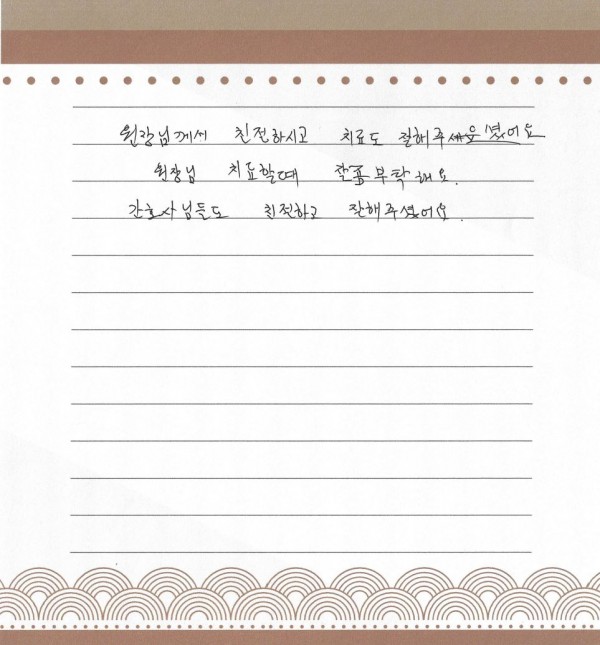 원장님께서 친절하시고 치료도 잘해주셨어요
원장님 치료할때 잘 부탁해요.
간호사님들도 친절하고 잘해주셨어요.